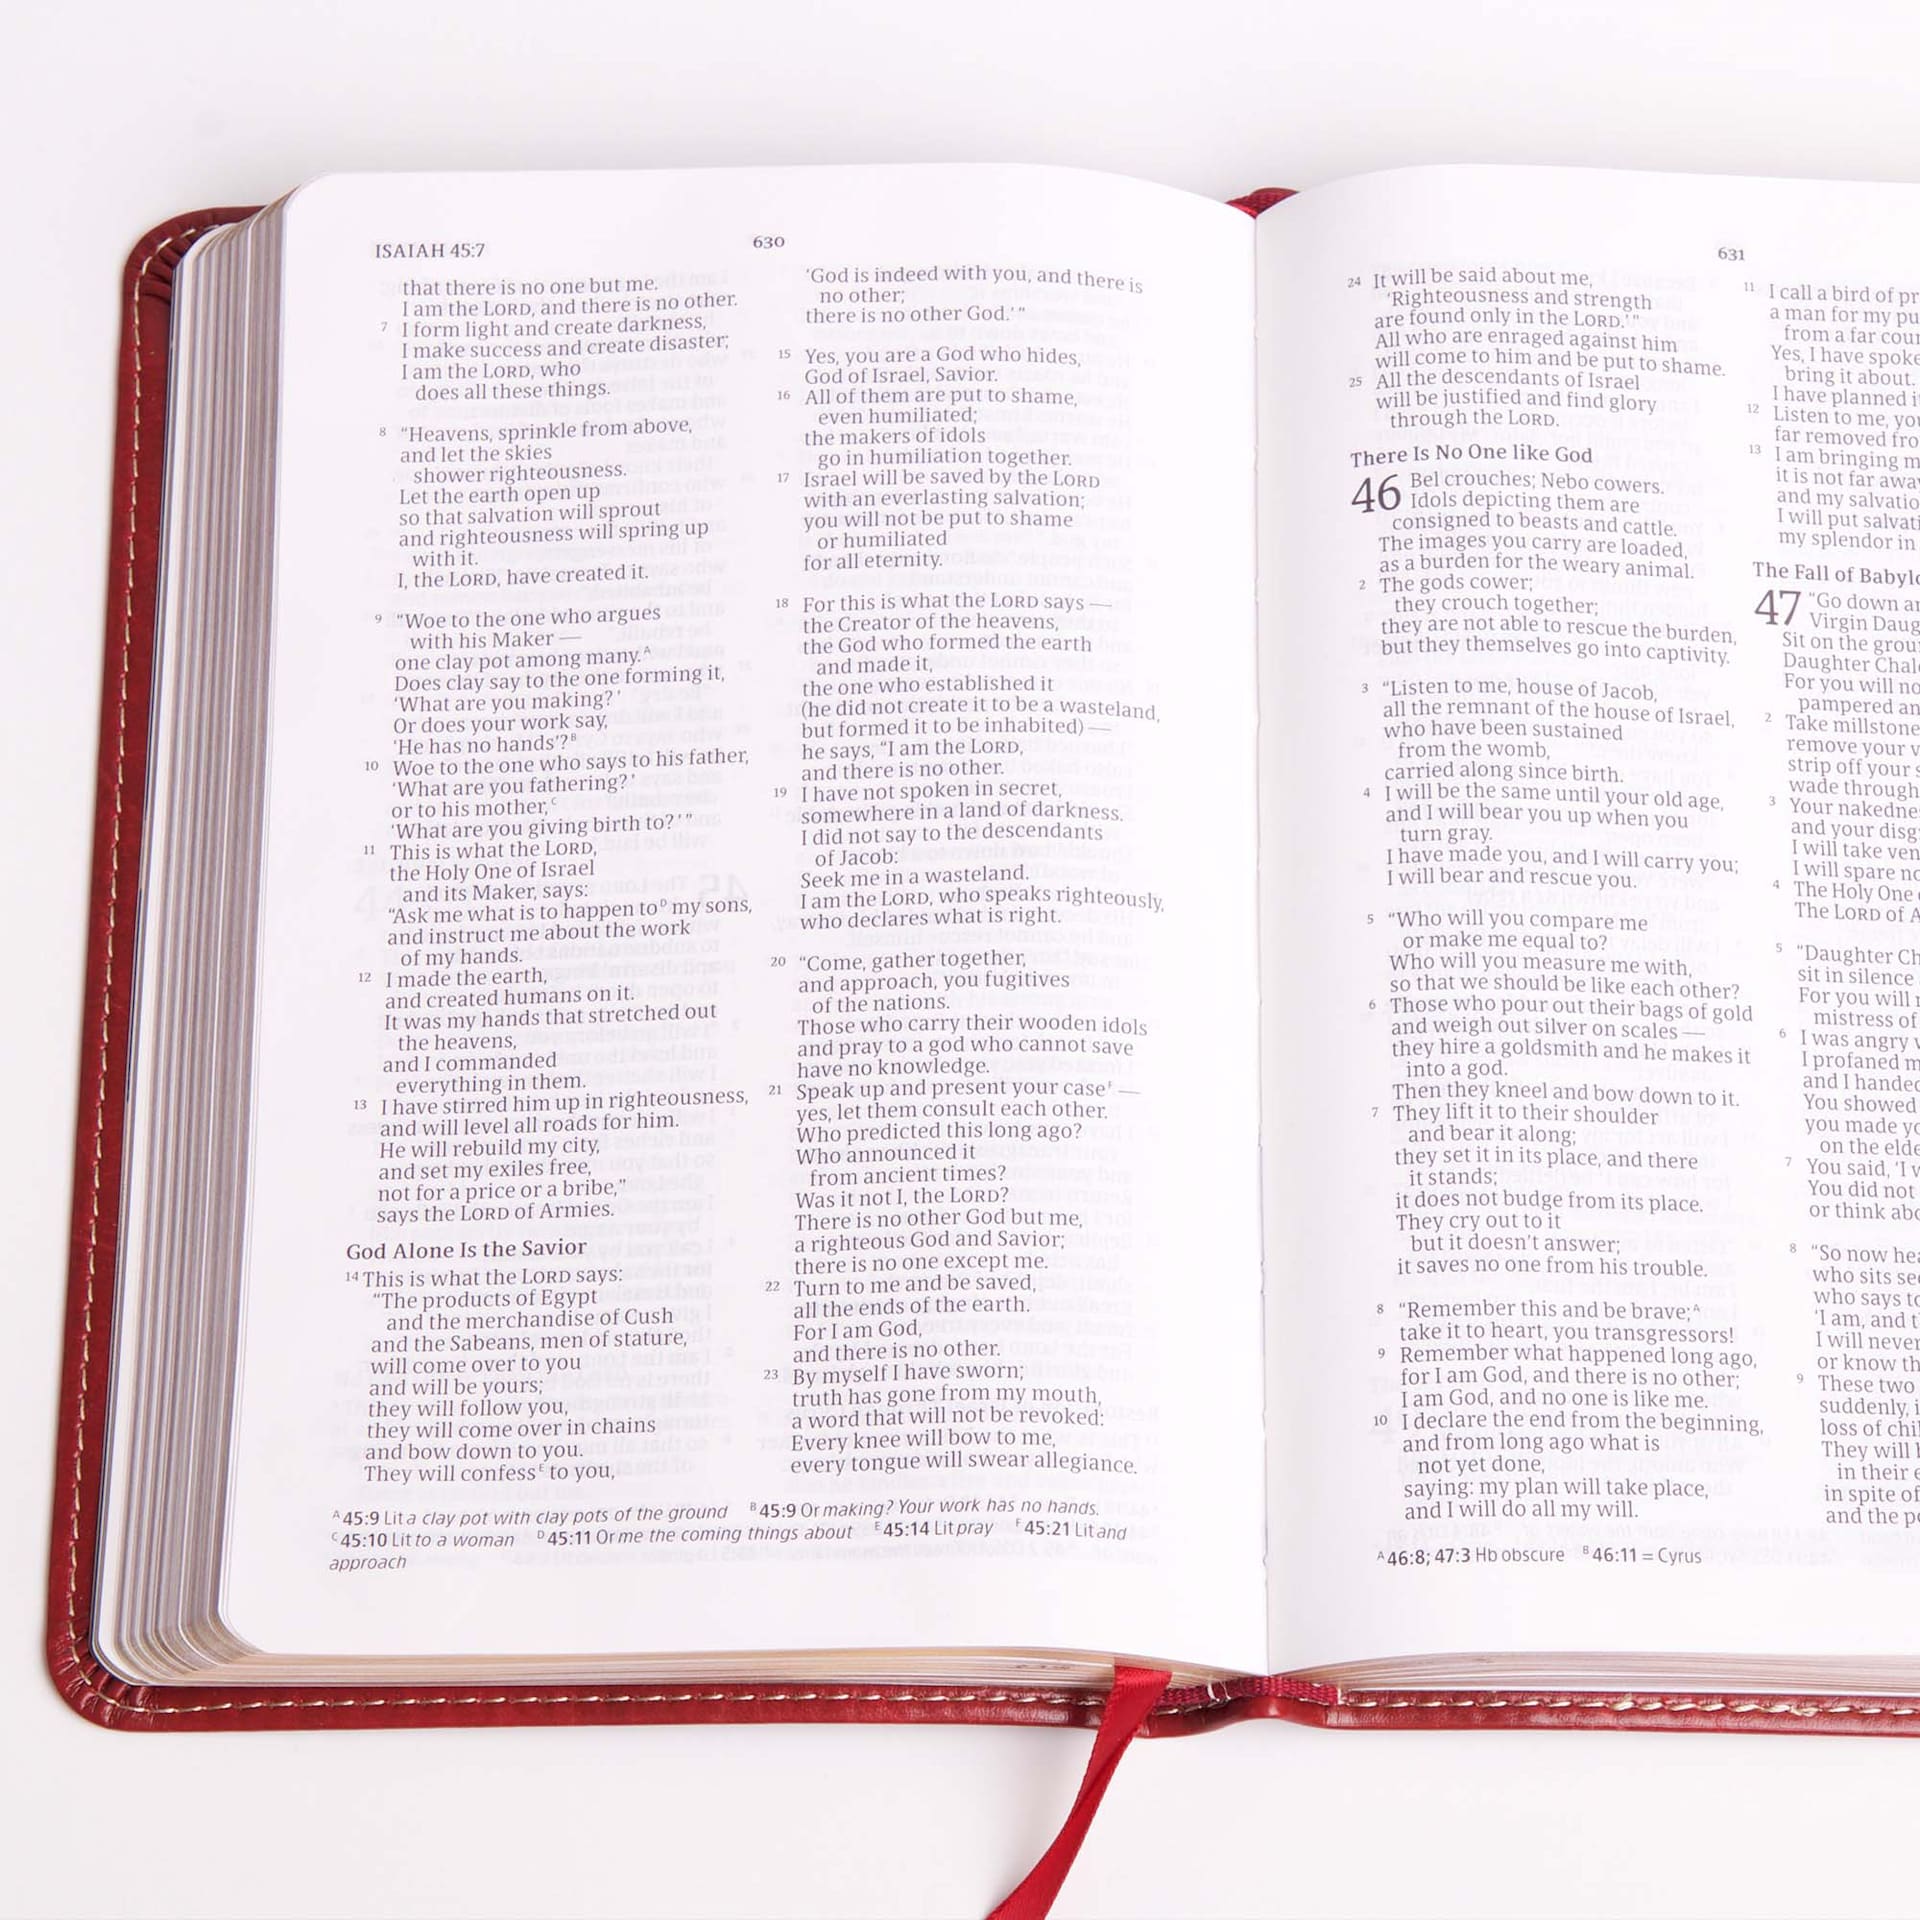 ISAIAH 45:7
630
that there is no one but me.
I am the LORD, and there is no other.
7 I form light and create darkness,
I make success and create disaster;
I am the LORD, who
does all these things.
8 “Heavens, sprinkle from above,
and let the skies
shower righteousness.
Let the earth open up
so that salvation will sprout
and righteousness will spring up
with it.
I, the LORD, have created it.
9 “Woe to the one who argues
with his Maker —
one clay pot among many.A
Does clay say to the one forming it,
‘What are you making?’
Or does your work say,
‘He has no hands’?B
10 Woe to the one who says to his father,
‘What are you fathering?’
or to his mother,C
‘What are you giving birth to?’”
11 This is what the LORD,
the Holy One of Israel
and its Maker, says:
“Ask me what is to happen toD my sons,
and instruct me about the work
of my hands.
12 I made the earth,
and created humans on it.
It was my hands that stretched out
the heavens,
and I commanded
everything in them.
13 I have stirred him up in righteousness,
and will level all roads for him.
He will rebuild my city,
and set my exiles free,
not for a price or a bribe,”
says the LORD of Armies.
God Alone Is the Savior
14 This is what the LORD says:
“The products of Egypt
and the merchandise of Cush
and the Sabeans, men of stature,
will come over to you
and will be yours;
they will follow you,
they will come over in chains
and bow down to you.
They will confessE to you,
‘God is indeed with you, and there is
no other;
there is no other God.’”
15 Yes, you are a God who hides,
God of Israel, Savior.
16 All of them are put to shame,
even humiliated;
the makers of idols
go in humiliation together.
17 Israel will be saved by the LORD
with an everlasting salvation;
you will not be put to shame
or humiliated
for all eternity.
18 For this is what the LORD says —
the Creator of the heavens,
the God who formed the earth
and made it,
the one who established it
(he did not create it to be a wasteland,
but formed it to be inhabited) —
he says, “I am the LORD,
and there is no other.
19 I have not spoken in secret,
somewhere in a land of darkness.
I did not say to the descendants
of Jacob:
Seek me in a wasteland.
I am the LORD, who speaks righteously,
who declares what is right.
20 “Come, gather together,
and approach, you fugitives
of the nations.
Those who carry their wooden idols
and pray to a god who cannot save
have no knowledge.
21 Speak up and present your caseF —
yes, let them consult each other.
Who predicted this long ago?
Who announced it
from ancient times?
Was it not I, the LORD?
There is no other God but me,
a righteous God and Savior;
there is no one except me.
22 Turn to me and be saved,
all the ends of the earth.
For I am God,
and there is no other.
23 By myself I have sworn;
truth has gone from my mouth,
a word that will not be revoked:
Every knee will bow to me,
every tongue will swear allegiance.
A 45:9 Lit a clay pot with clay pots of the ground B 45:9 Or making? Your work has no hands.
C 45:10 Lit to a woman D 45:11 Or me the coming things about E 45:14 Lit pray F 45:21 Lit and
approach
631
24 It will be said about me,
‘Righteousness and strength
are found only in the LORD.’”
All who are enraged against him
will come to him and be put to shame.
25 All the descendants of Israel
will be justified and find glory
through the LORD.
There Is No One like God
46 Bel crouches; Nebo cowers.
Idols depicting them are
consigned to beasts and cattle.
The images you carry are loaded,
as a burden for the weary animal.
2 The gods cower;
they crouch together;
they are not able to rescue the burden,
but they themselves go into captivity.
3 “Listen to me, house of Jacob,
all the remnant of the house of Israel,
who have been sustained
from the womb,
carried along since birth.
4 I will be the same until your old age,
and I will bear you up when you
turn gray.
I have made you, and I will carry you;
I will bear and rescue you.
5 “Who will you compare me
or make me equal to?
Who will you measure me with,
so that we should be like each other?
6 Those who pour out their bags of gold
and weigh out silver on scales —
they hire a goldsmith and he makes it
into a god.
Then they kneel and bow down to it.
7 They lift it to their shoulder
and bear it along;
they set it in its place, and there
it stands;
it does not budge from its place.
They cry out to it
but it doesn’t answer;
it saves no one from his trouble.
8 “Remember this and be brave;A
take it to heart, you transgressors!
9 Remember what happened long ago,
for I am God, and there is no other;
I am God, and no one is like me.
10 I declare the end from the beginning,
and from long ago what is
not yet done,
saying: my plan will take place,
and I will do all my will.
11 I call a bird of
a man for my
from a far
Yes, I have
bring it about.
I have planned
12 Listen to me,
far removed
13 I am bringing
it is not far
and my
I will put
my splendor in
The Fall of
47 “Go down
Virgin
Sit on the
Daughter
For you will
pampered
2 Take
remove your
strip off your
wade through
3 Your
and your
I will take
I will spare
4 The Holy One
The LORD of
5 “Daughter
sit in silence
For you will
mistress of
6 I was angry
I profaned
and I handed
You showed
you made
on the
7 You said, ‘I
You did not
or think
8 “So now
who sits
who says
‘I am, and
I will never
or know
9 These two
suddenly,
loss of
They will
in their
in spite of
and the
A 46:8; 47:3 Hb obscure B 46:11 = Cyrus